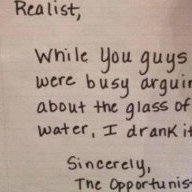 Realist,
While You guys
were busy arguin
about the glass of
water, I drank it
Sincerely,
The Opportunis